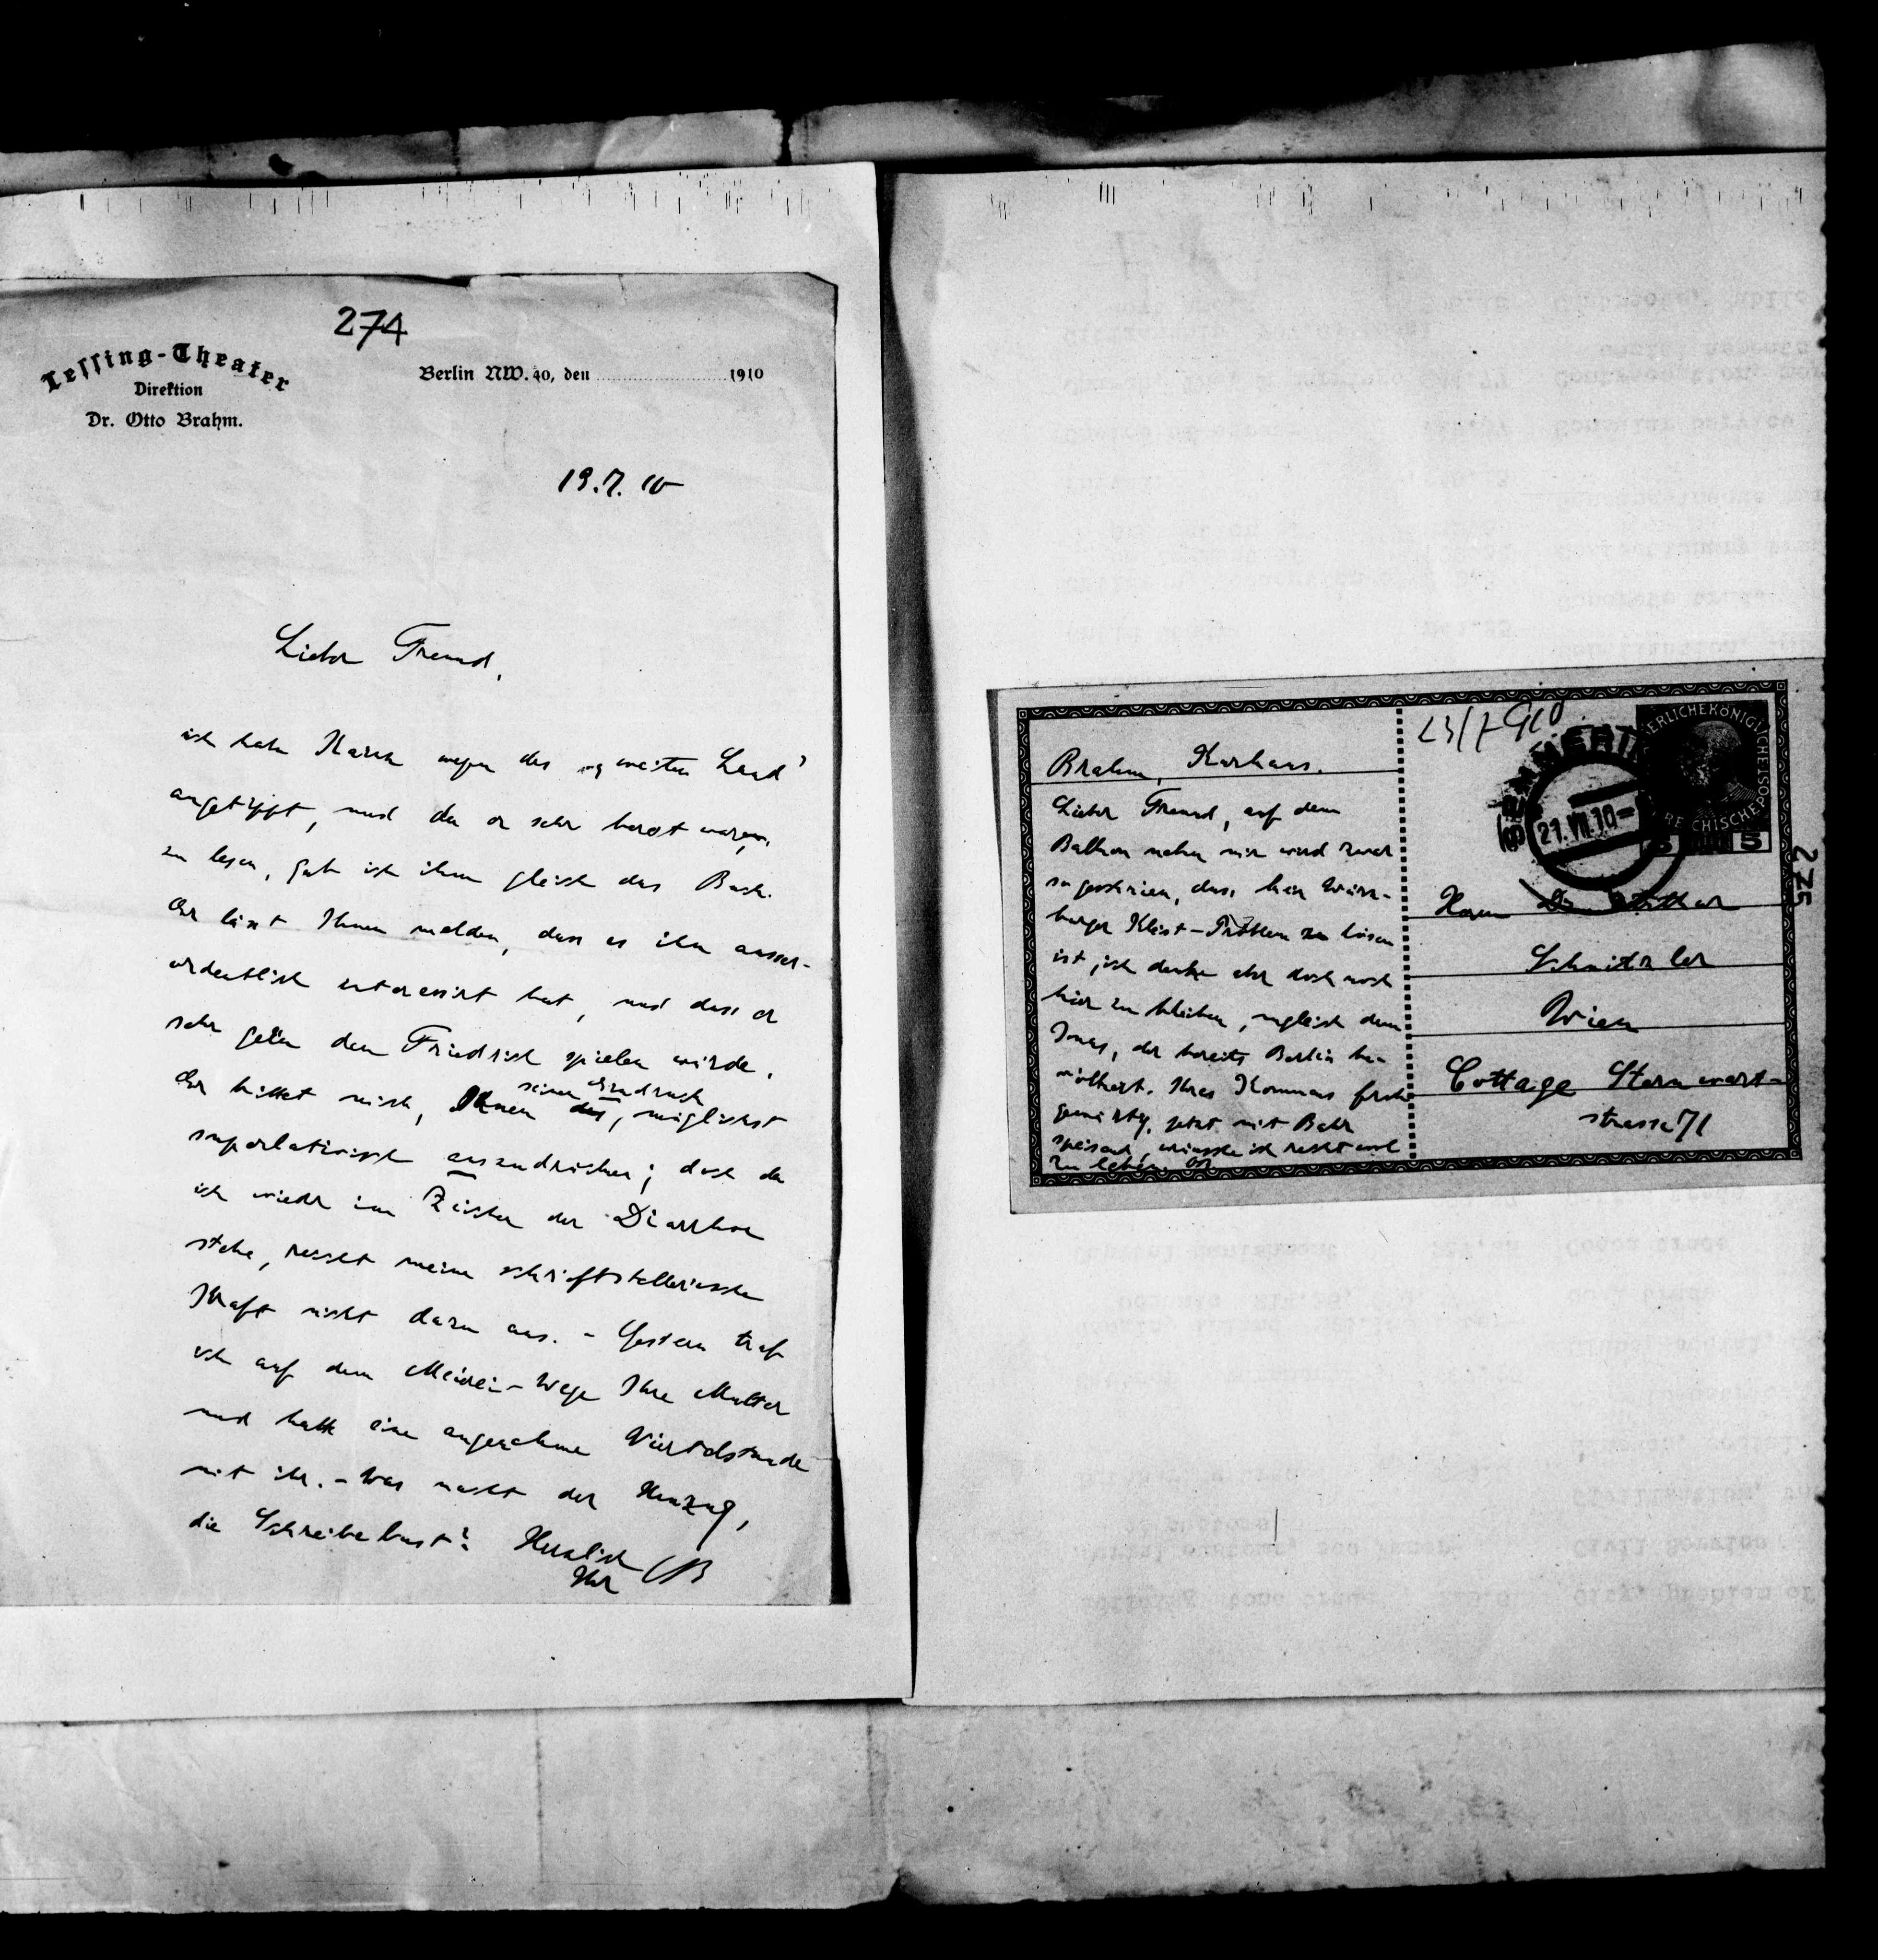 274
Lessing-Theater
Direktion
Dr. Otto Brahm.
Berlin NW. 40, den 1910
19.7.10
Lieber Freund,
ich habe wegen des „weiten Land'
angetippt, und da er sehr bereit war,
zu lesen, gab ich ihm gleich das Buch.
Er lässt Ihnen melden, dass es ihn ausser-
ordentlich interessirt hat, und dass er
sehr gern den Friedrich spielen würde.
Er bittet mich, Ihnen seinen Eindruck, möglichst
superlativisch auszudrücken; doch da
ich wieder im Zeichen der Diarrhoe
stehe, reicht meine schriftstellerische
Kraft nicht dazu aus. – Gestern traf
ich auf dem Meierei-Wege Ihre Mutter
und hatte eine angenehme Viertelstunde
mit ihr. – Was macht der Umzug,
die Schreibelust? Herzlich
Ihr OB
23/7 910
Brahm, Kurhaus.
Lieber Freund, auf dem
Balkon neben mir wird zwar
so geschrieen, dass kein Würz-
burger Kleist-Problem zu lösen
ist, ich denke aber doch noch
hier zu bleiben, ungleich dem
Jonas, der bereits Berlin be-
völkert. Ihres Kommens
gewärtig, jetzt mit Bahr
speisend, wünsche ich recht wol
zu leben. OB
SEMMERING
21.VII.10
KAISERLICHE KÖNIGLICHE ÖSTERREICHISCHE POST
5 5
275
Herrn Dr. Arthur
Schnitzler
Wien
Cottage Sternwart-
strasse 71